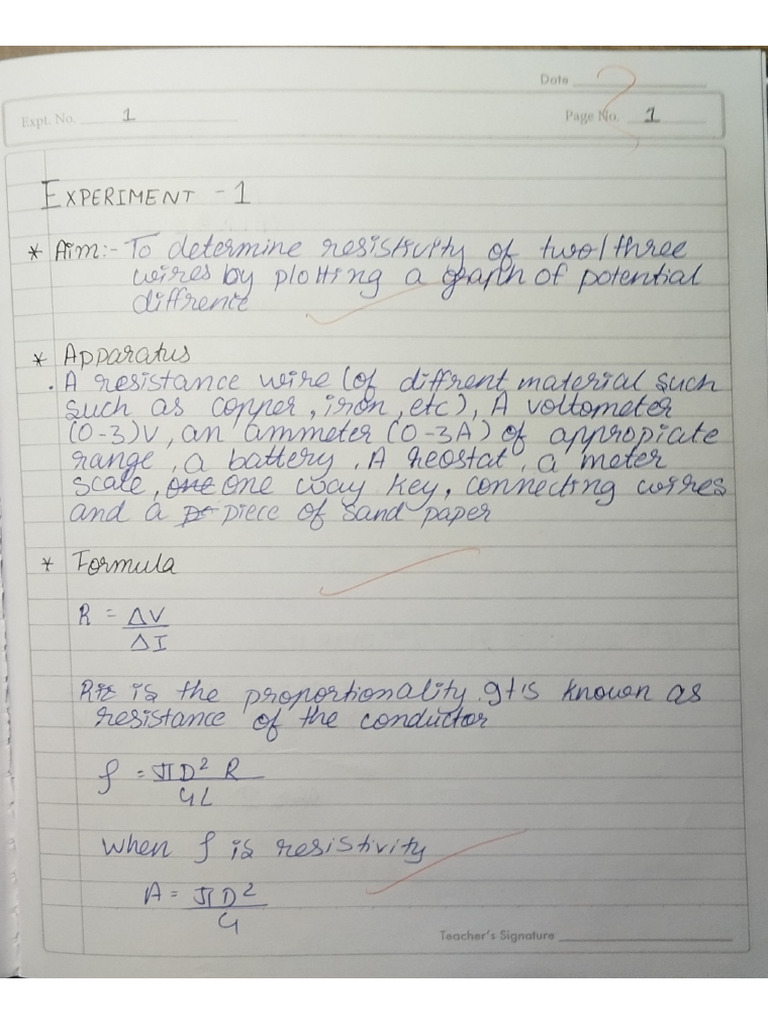 Date
Expt. No. 1
Page No. 1
EXPERIMENT - 1
* Aim:- To determine resistivity of two/three
wires by plotting a graph of potential
diffrence
* Apparatus
. A resistance wire (of diffrent material such
such as copper, iron, etc), A voltometer
(0-3)V, an ammeter (0-3A) of appropiate
range, a battery, A reostat, a meter
scale, one one way key, connecting wires
and a pe piece of sand paper
* Formula
R = ΔV
ΔI
R is the proportionality. It is known as
resistance of the conductor
ρ = πD² R
4L
When ρ is resistivity
A = πD²
4
Teacher's Signature